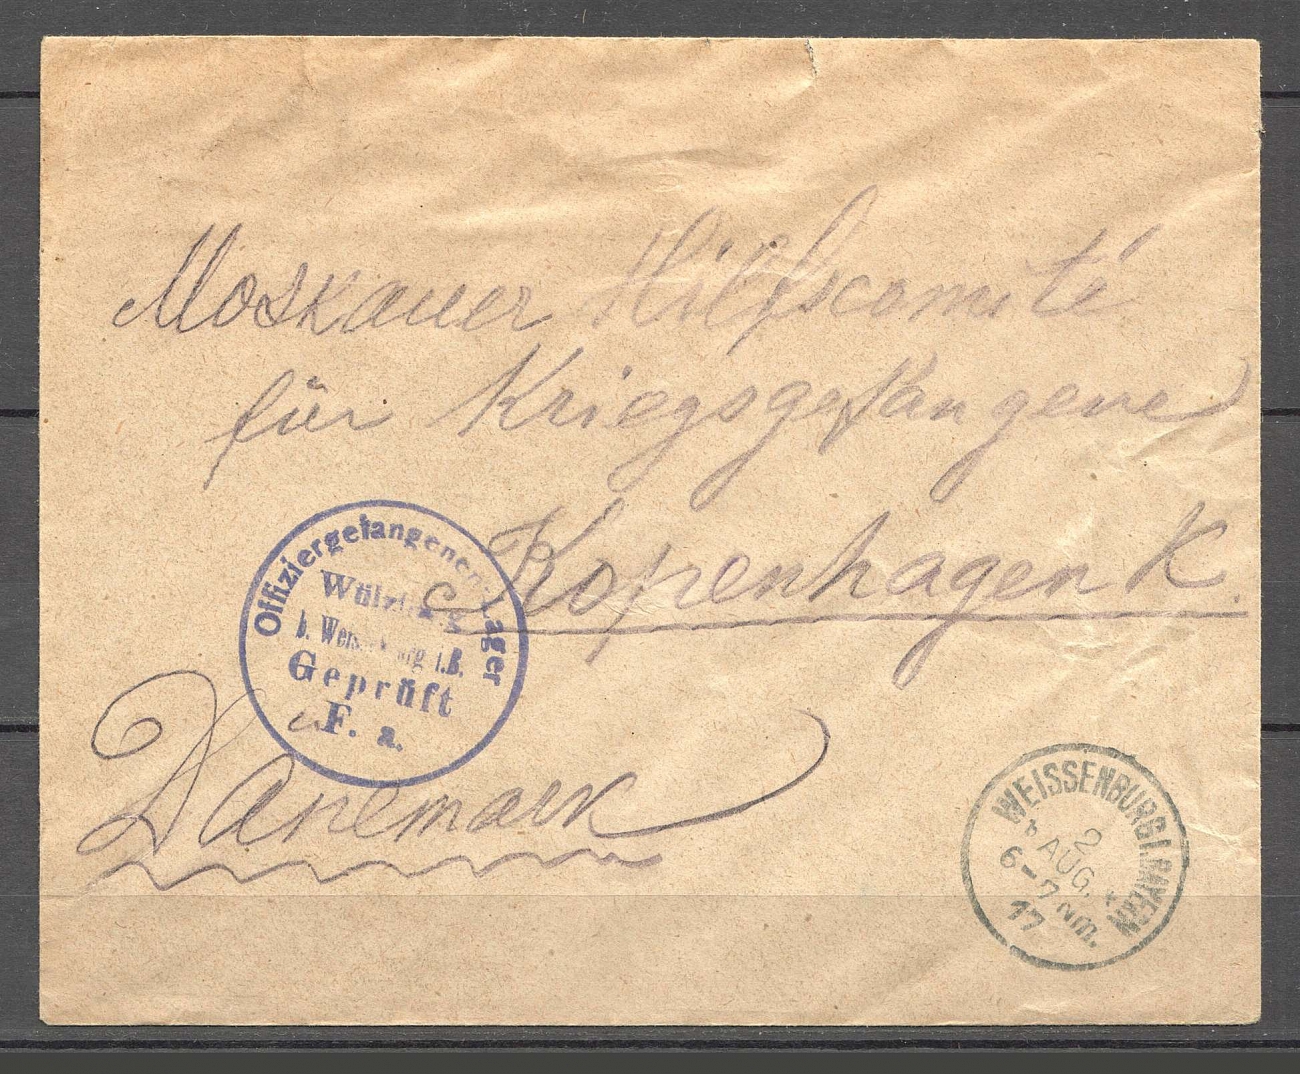 Moskauer Hilfscomité
für Kriegsgefangene
Kopenhagen K.
Dänemark
Offiziergefangenen-Lager
Wülzburg
b. Weissenburg i.B.
Geprüft
F. a.
WEISSENBURG I. BAYERN
2
AUG.
6-7 Nm.
17